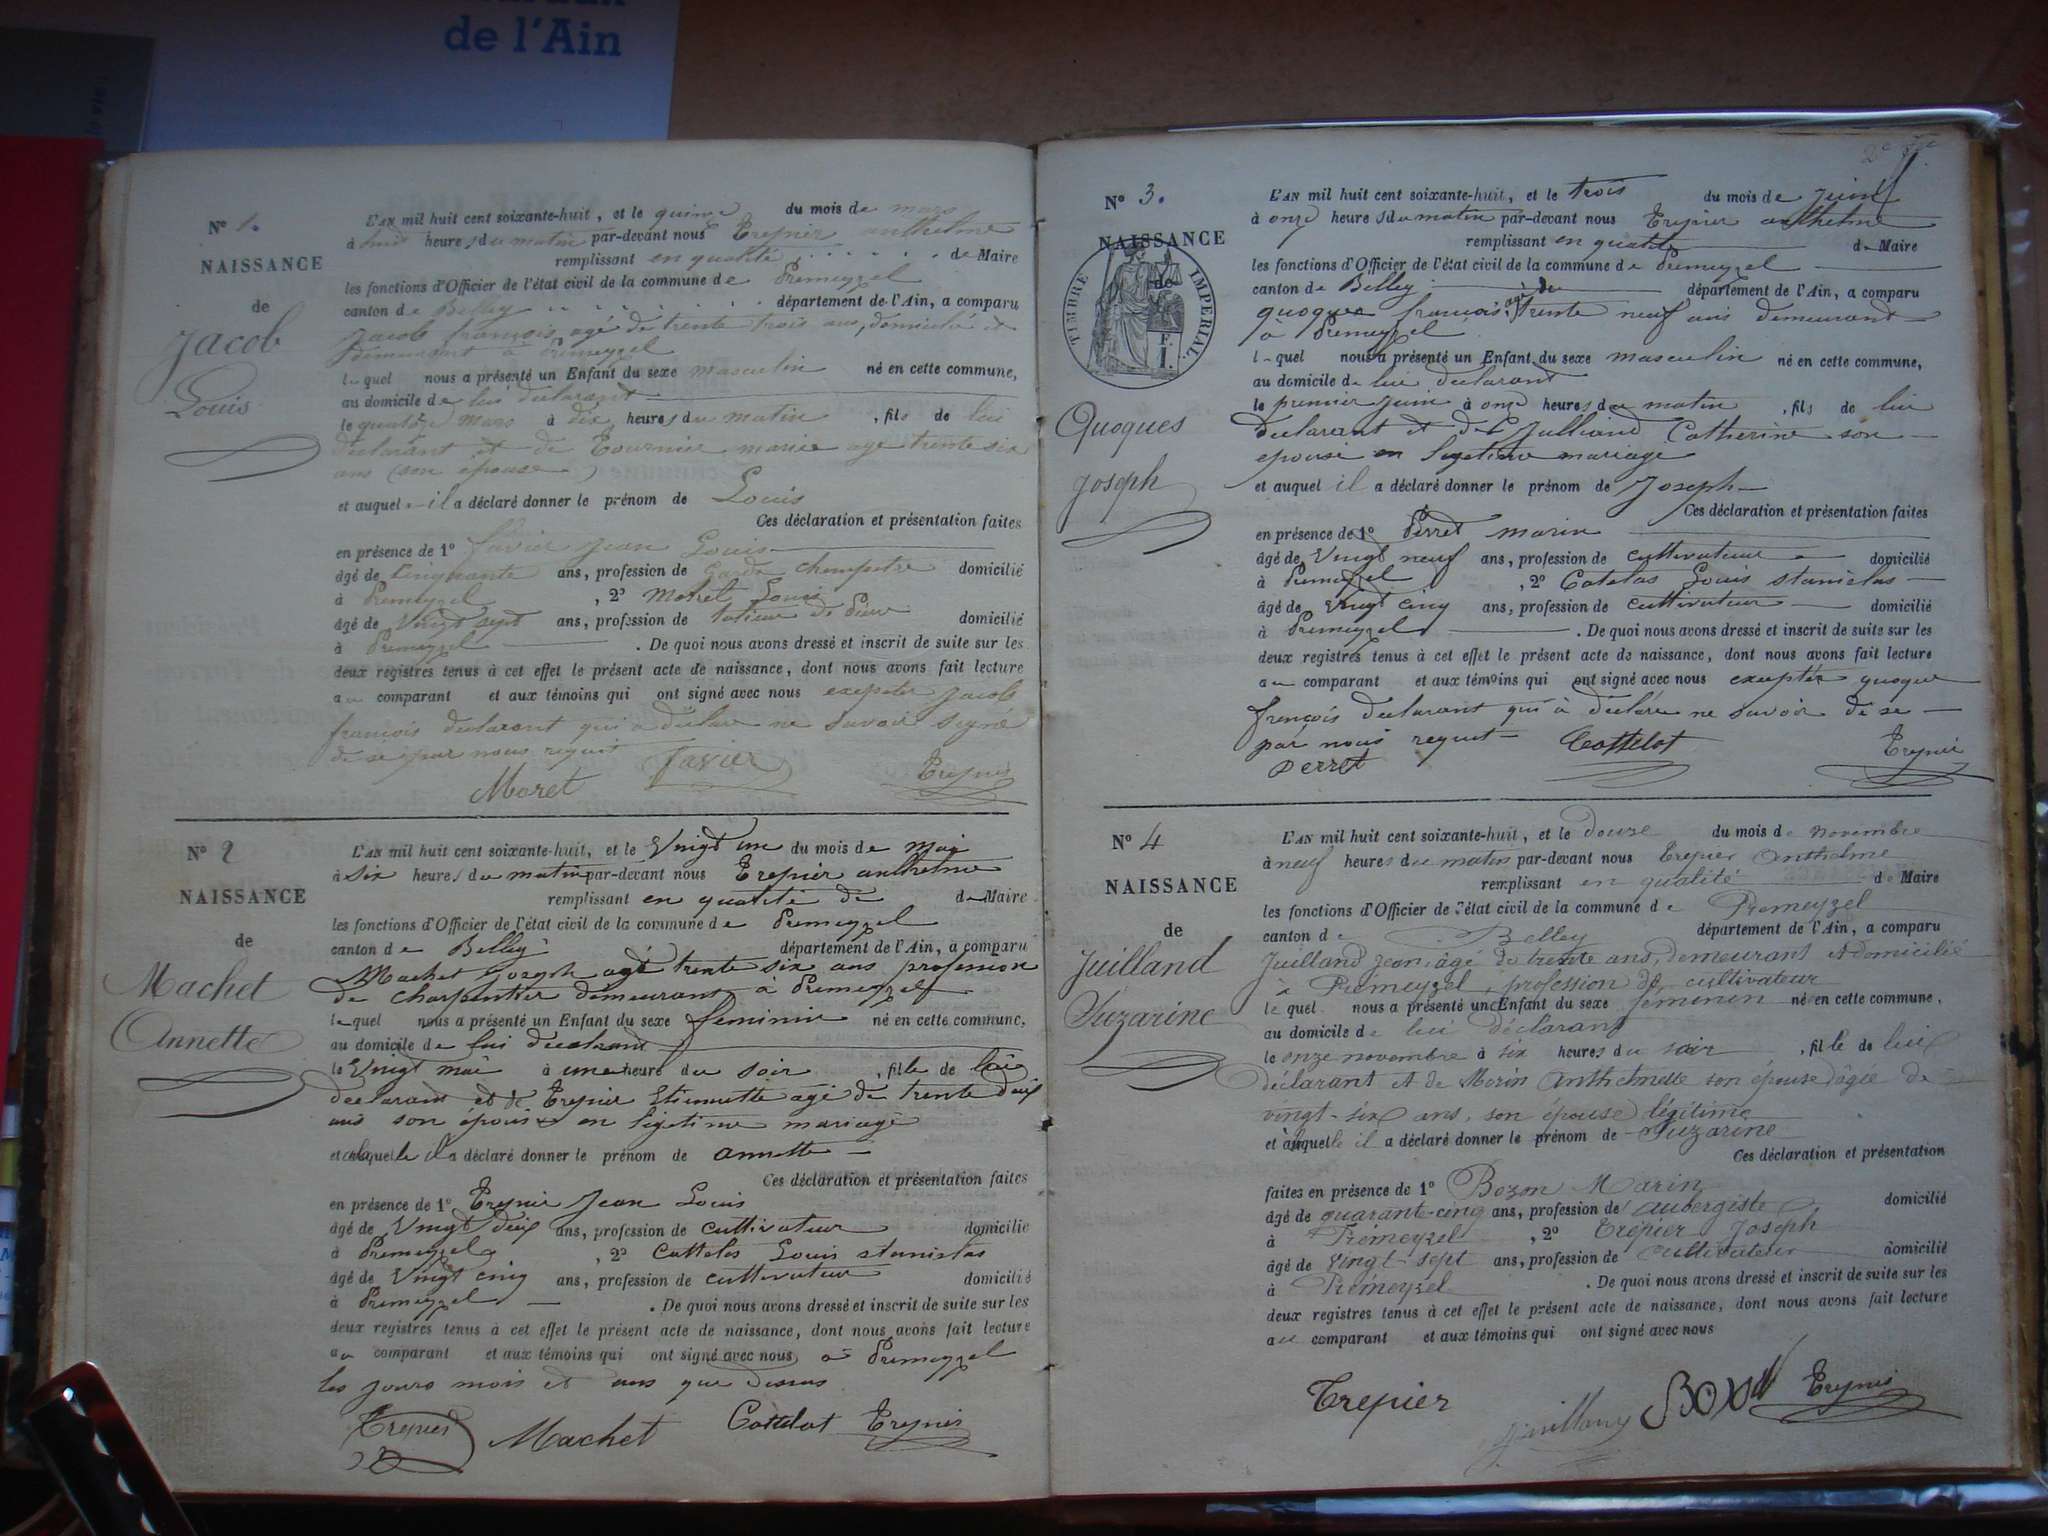 de l'Ain
N° 1.
NAISSANCE
de
Jacob
Louis
L'AN mil huit cent soixante-huit, et le quinze du mois de mars
à huit heures du matin par-devant nous Trepier anthelme
remplissant en qualité de Maire
les fonctions d'Officier de l'état civil de la commune de Premeyzel
canton de Belley département de l'Ain, a comparu
Jacob françois agé de trente trois ans, domicilié et
demeurant à Premeyzel
lequel nous a présenté un Enfant du sexe masculin né en cette commune,
au domicile de lui declarant
le quatorze mars à dix heures du matin, fils de lui
declarant et de Tournier marie age trente six
ans (son épouse)
et auquel il a déclaré donner le prénom de Louis
Ces déclaration et présentation faites
en présence de 1° favier Jean Louis
âgé de cinquante ans, profession de Garde champetre domicilié
à Premeyzel, 2° Moret Louis
âgé de Vingt sept ans, profession de domicilié
à Premeyzel. De quoi nous avons dressé et inscrit de suite sur les
deux registres tenus à cet effet le présent acte de naissance, dont nous avons fait lecture
au comparant et aux témoins qui ont signé avec nous exepeter Jacob
françois declarant qui a declare ne savoir signé
de se par nous requit
Moret favier Trepier
N° 2
NAISSANCE
de
Machet
Annette
L'AN mil huit cent soixante-huit, et le Vingt un du mois de mai
à six heures du matin par-devant nous Trepier anthelme
remplissant en qualité de de Maire
les fonctions d'Officier de l'état civil de la commune de Premeyzel
canton de Belley département de l'Ain, a comparu
Machet Joseph agé trente six ans profession
de charpentier demeurant à Premeyzel
lequel nous a présenté un Enfant du sexe feminin né en cette commune,
au domicile de lui declarant
le Vingt mai à une heure du soir, fille de lui
declarant et de Trepier Etiennette agé de trente deux
ans son épouse en legetime mariage
et à laquelle il a déclaré donner le prénom de annette
Ces déclaration et présentation faites
en présence de 1° Trepier Jean Louis
âgé de Vingt deux ans, profession de cultivateur domicilié
à Premeyzel, 2° Cattelot Louis stanislas
âgé de Vingt cinq ans, profession de cultivateur domicilié
à Premeyzel. De quoi nous avons dressé et inscrit de suite sur les
deux registres tenus à cet effet le présent acte de naissance, dont nous avons fait lecture
au comparant et aux témoins qui ont signé avec nous à Premeyzel
les jours mois et ans que dessus
Trepier Machet Cattelot Trepier
N° 3.
NAISSANCE
de
TIMBRE IMPERIAL.
F.
1.
Quoques
Joseph
L'AN mil huit cent soixante-huit, et le trois du mois de juin
à onze heures du matin par-devant nous Trepier anthelme
remplissant en qualité de Maire
les fonctions d'Officier de l'état civil de la commune de Premeyzel
canton de Belley département de l'Ain, a comparu
quoque françois agé de trente neuf ans demeurant
à Premeyzel
lequel nous a présenté un Enfant du sexe masculin né en cette commune,
au domicile de lui declarant
le premier juin à onze heures du matin, fils de lui
declarant et de Julliand Catherine son
epouse en legetime mariage
et auquel il a déclaré donner le prénom de Joseph
Ces déclaration et présentation faites
en présence de 1° Perret marin
âgé de Vingt neuf ans, profession de cultivateur domicilié
à Premeyzel, 2° Catelas Louis stanislas
âgé de Vingt cinq ans, profession de cultivateur domicilié
à Premeyzel. De quoi nous avons dressé et inscrit de suite sur les
deux registres tenus à cet effet le présent acte de naissance, dont nous avons fait lecture
au comparant et aux témoins qui ont signé avec nous exepter quoque
françois declarant qui à déclare ne savoir de se
par nous requit Cattelot Trepier
Perret
N° 4
NAISSANCE
de
Juilland
Suzarine
L'AN mil huit cent soixante-huit, et le douze du mois de novembre
à neuf heures du matin par-devant nous Trepier Anthelme
remplissant en qualité de Maire
les fonctions d'Officier de l'état civil de la commune de Premeyzel
canton de Belley département de l'Ain, a comparu
Juilland Jean, âgé de trente ans, demeurant et domicilié
à Premeyzel, profession de cultivateur
lequel nous a présenté un Enfant du sexe féminin né en cette commune,
au domicile de lui déclarant
le onze novembre à six heures du soir, fille de lui
déclarant et de Morin Anthelmette son épouse âgée de
vingt-six ans, son épouse légitime
et à laquelle il a déclaré donner le prénom de Suzarine
Ces déclaration et présentation
faites en présence de 1° Bozon Marin
âgé de quarante-cinq ans, profession de aubergiste domicilié
à Prémeyzel, 2° Trépier Joseph
âgé de vingt-sept ans, profession de cultivateur domicilié
à Prémeyzel. De quoi nous avons dressé et inscrit de suite sur les
deux registres tenus à cet effet le présent acte de naissance, dont nous avons fait lecture
au comparant et aux témoins qui ont signé avec nous
Trepier Juilland Bozon Trepier